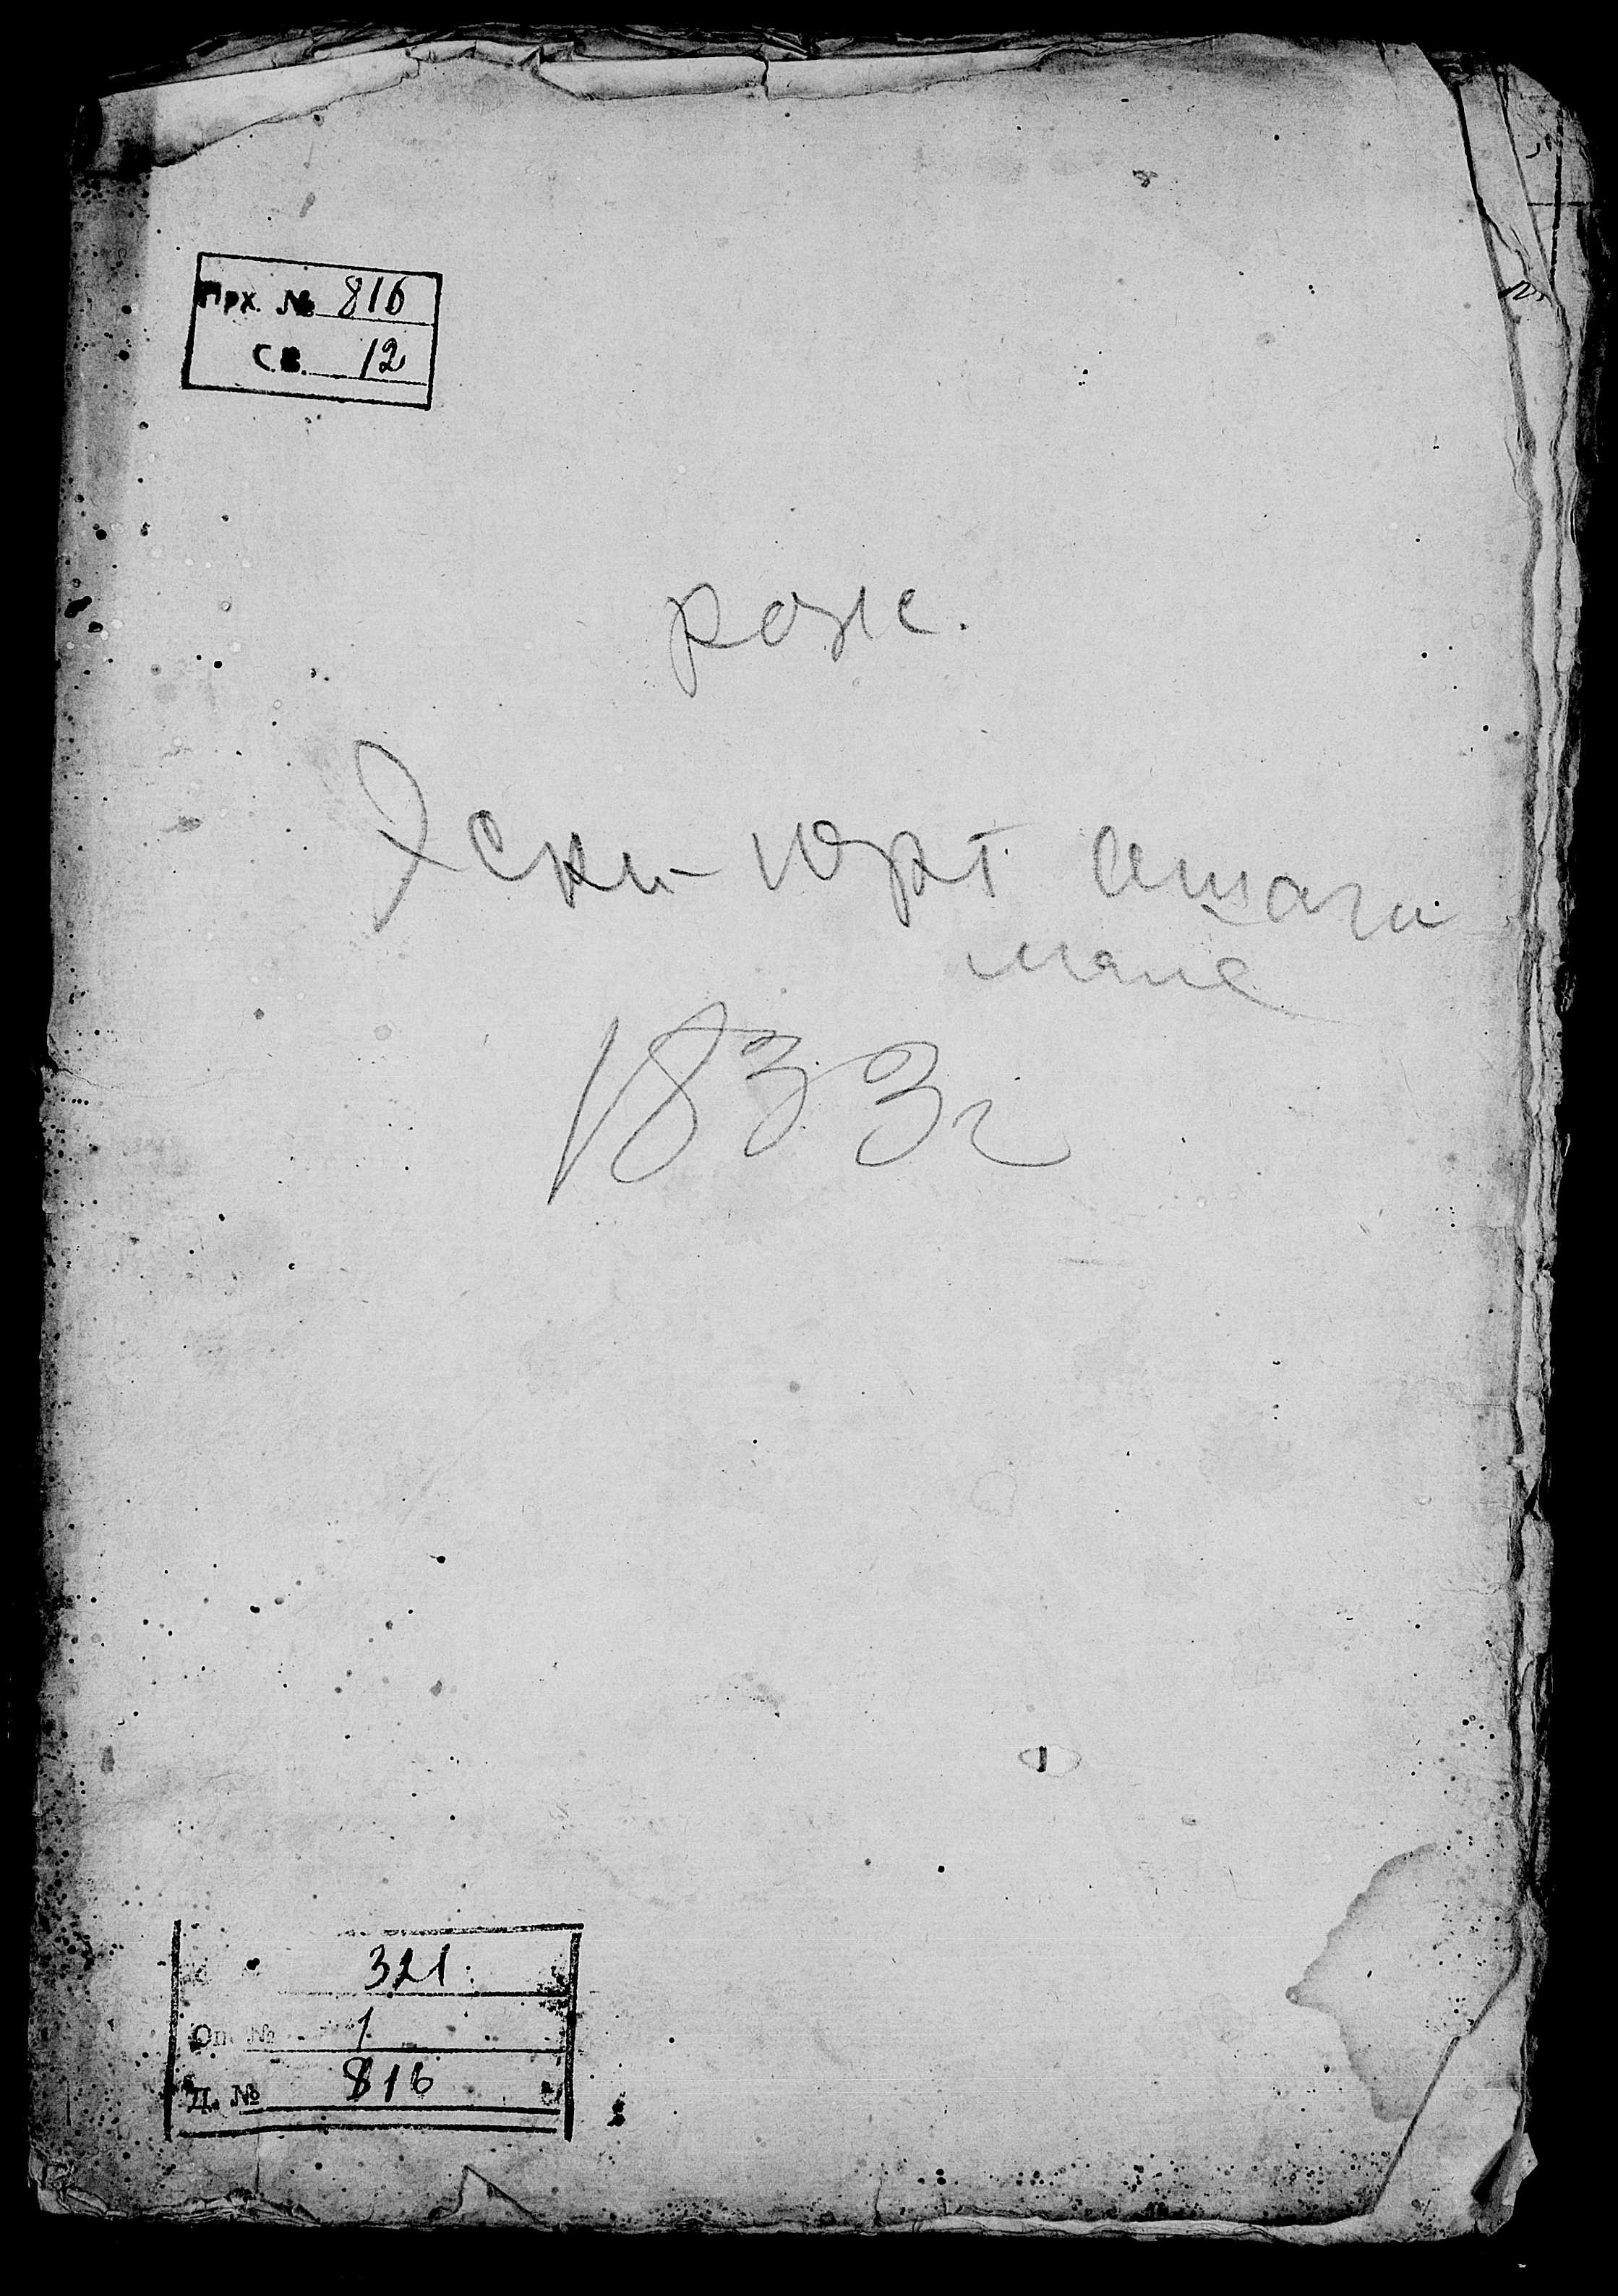 Арх. № 816
св. 12
рож.
Эски-юрт ашаги
мале
1833 г
321
Оп. № 1
Д. № 816